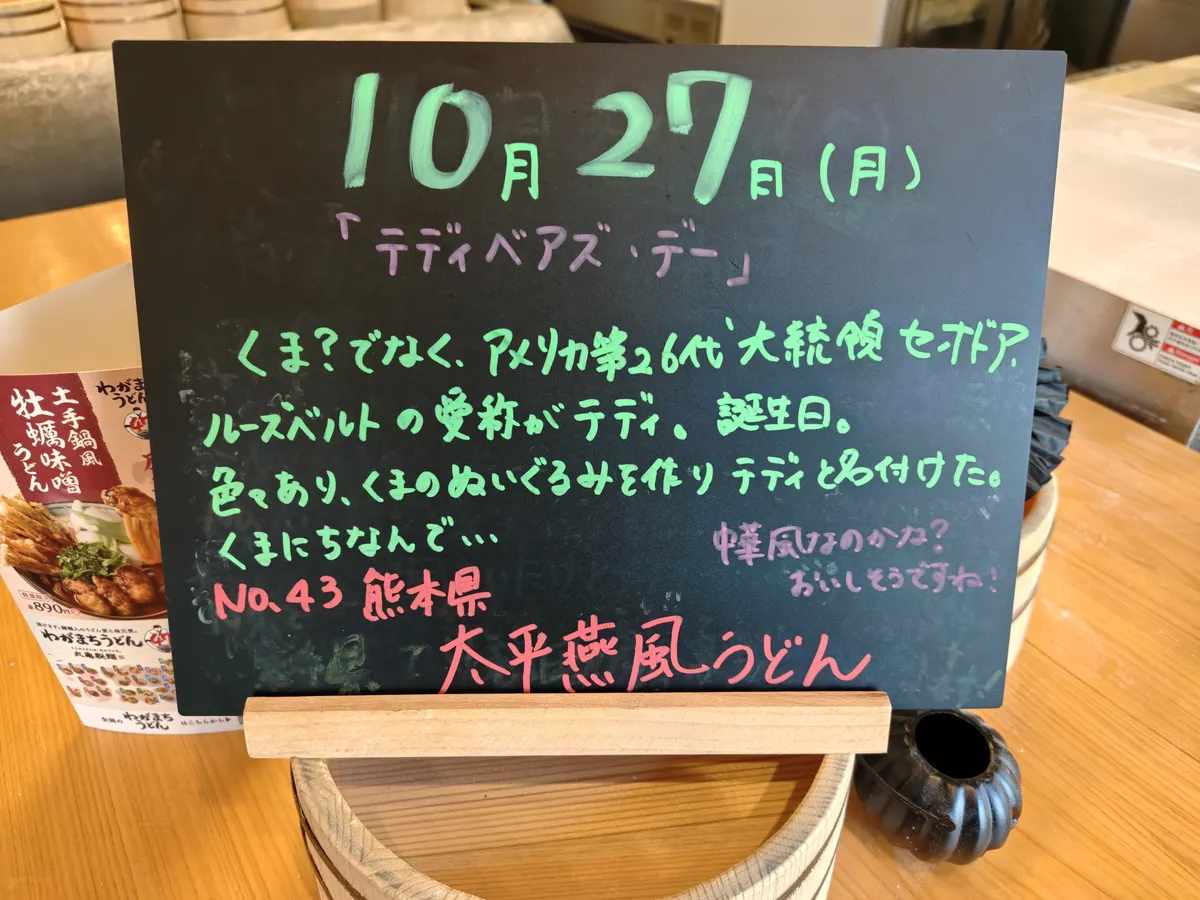 10月27日(月)
「テディベアズ・デー」
くま?でなく、アメリカ第26代大統領セオドア、
ルーズベルトの愛称がテディ。誕生日。
色々あり、くまのぬいぐるみを作りテディと名付けた。
くまにちなんで…
中華風なのかな?
おいしそうですね!
No.43 熊本県
太平燕風うどん
わがまち
うどん
土手鍋風
牡蠣味噌
うどん
890円
わがまちうどん
丸亀製麺
全国の わがまちうどん はこちらから▶